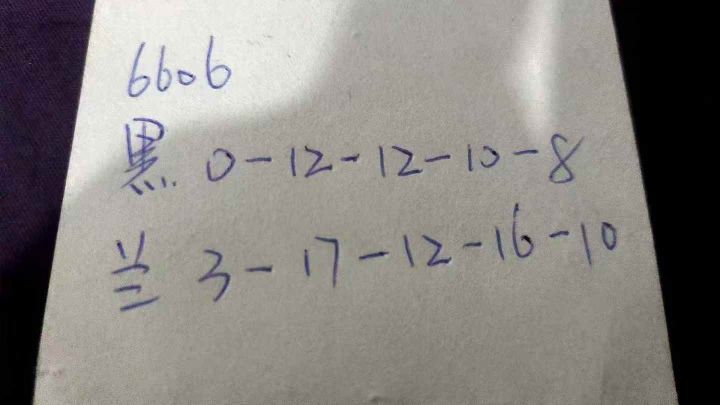 6606
黑 0-12-12-10-8
兰 3-17-12-16-10